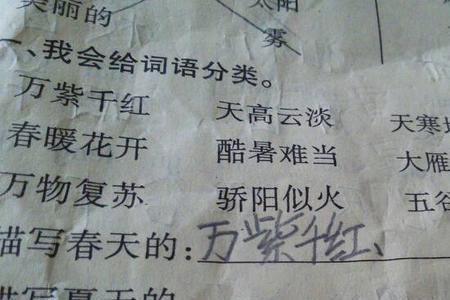 美丽的 太阳
雾
一、我会给词语分类。
万紫千红 天高云淡 天寒
春暖花开 酷暑难当 大雁
万物复苏 骄阳似火 五谷
描写春天的:万紫千红、
描写夏天的